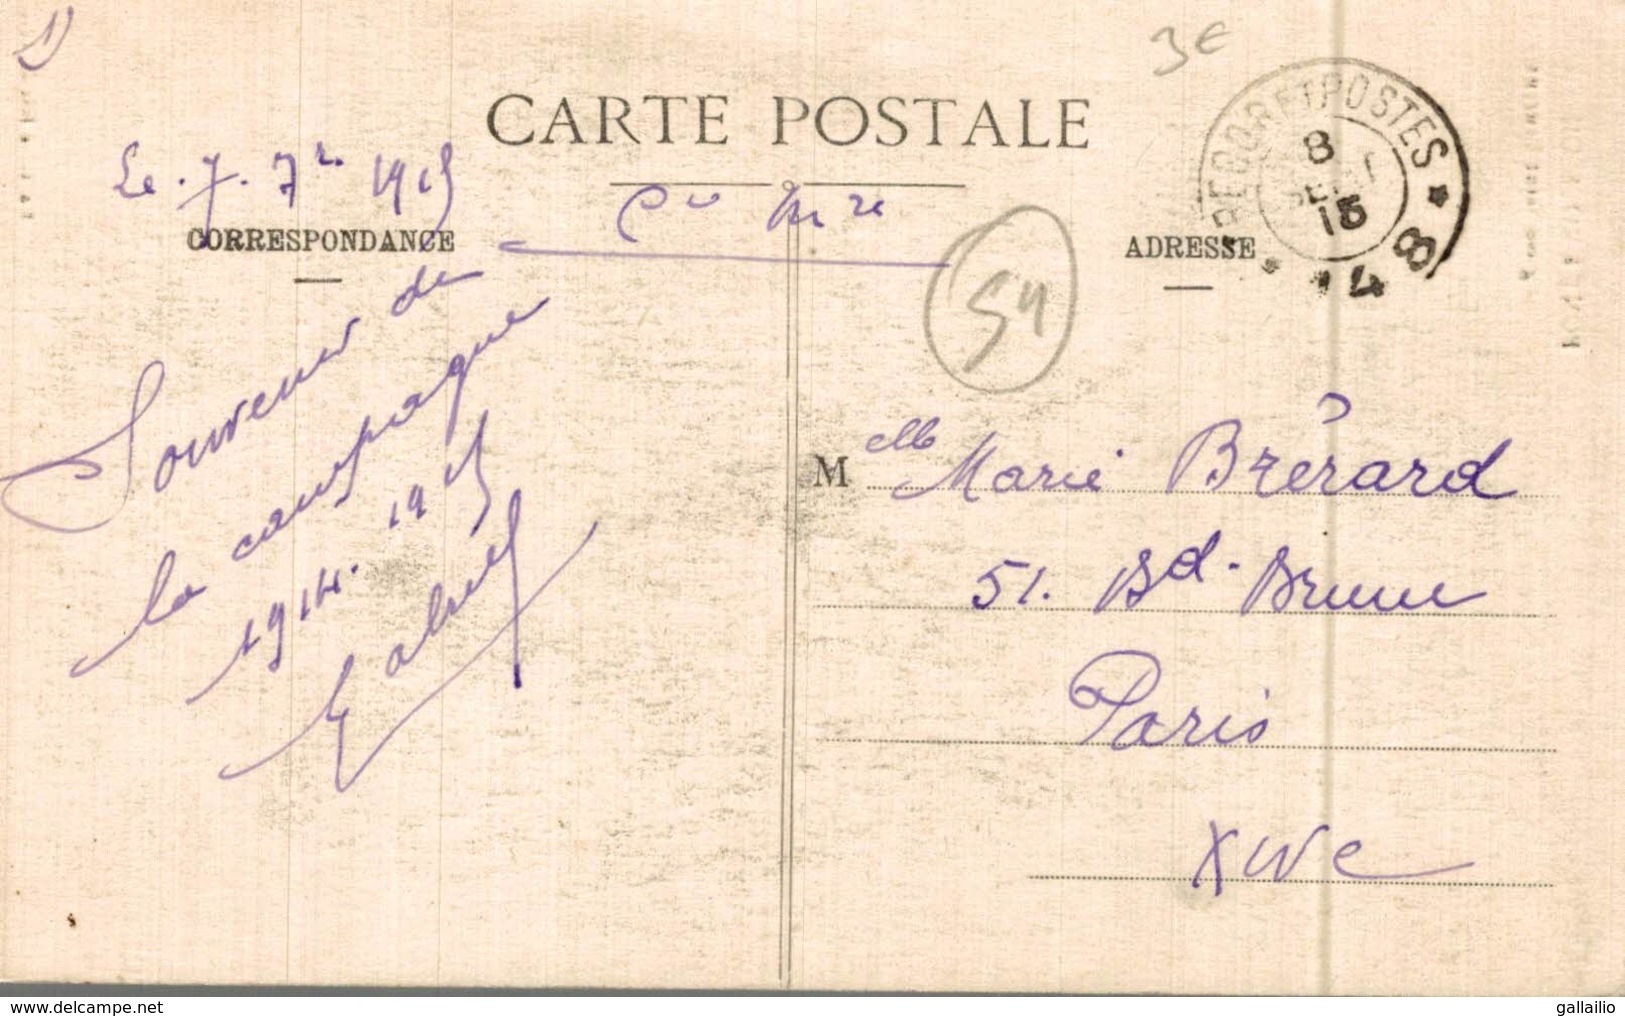 3€
CARTE POSTALE
TRESOR ET POSTES
8
SEPT
15
* 48 *
Le. 7. 7re 1915
Cce Mre
CORRESPONDANCE
ADRESSE
54
Souvenir de
la campagne
1914. 1915
Gabriel
Melle Marie Brérard
51. Bd. Brune
Paris
XIVe
delcampe.net
gallailio